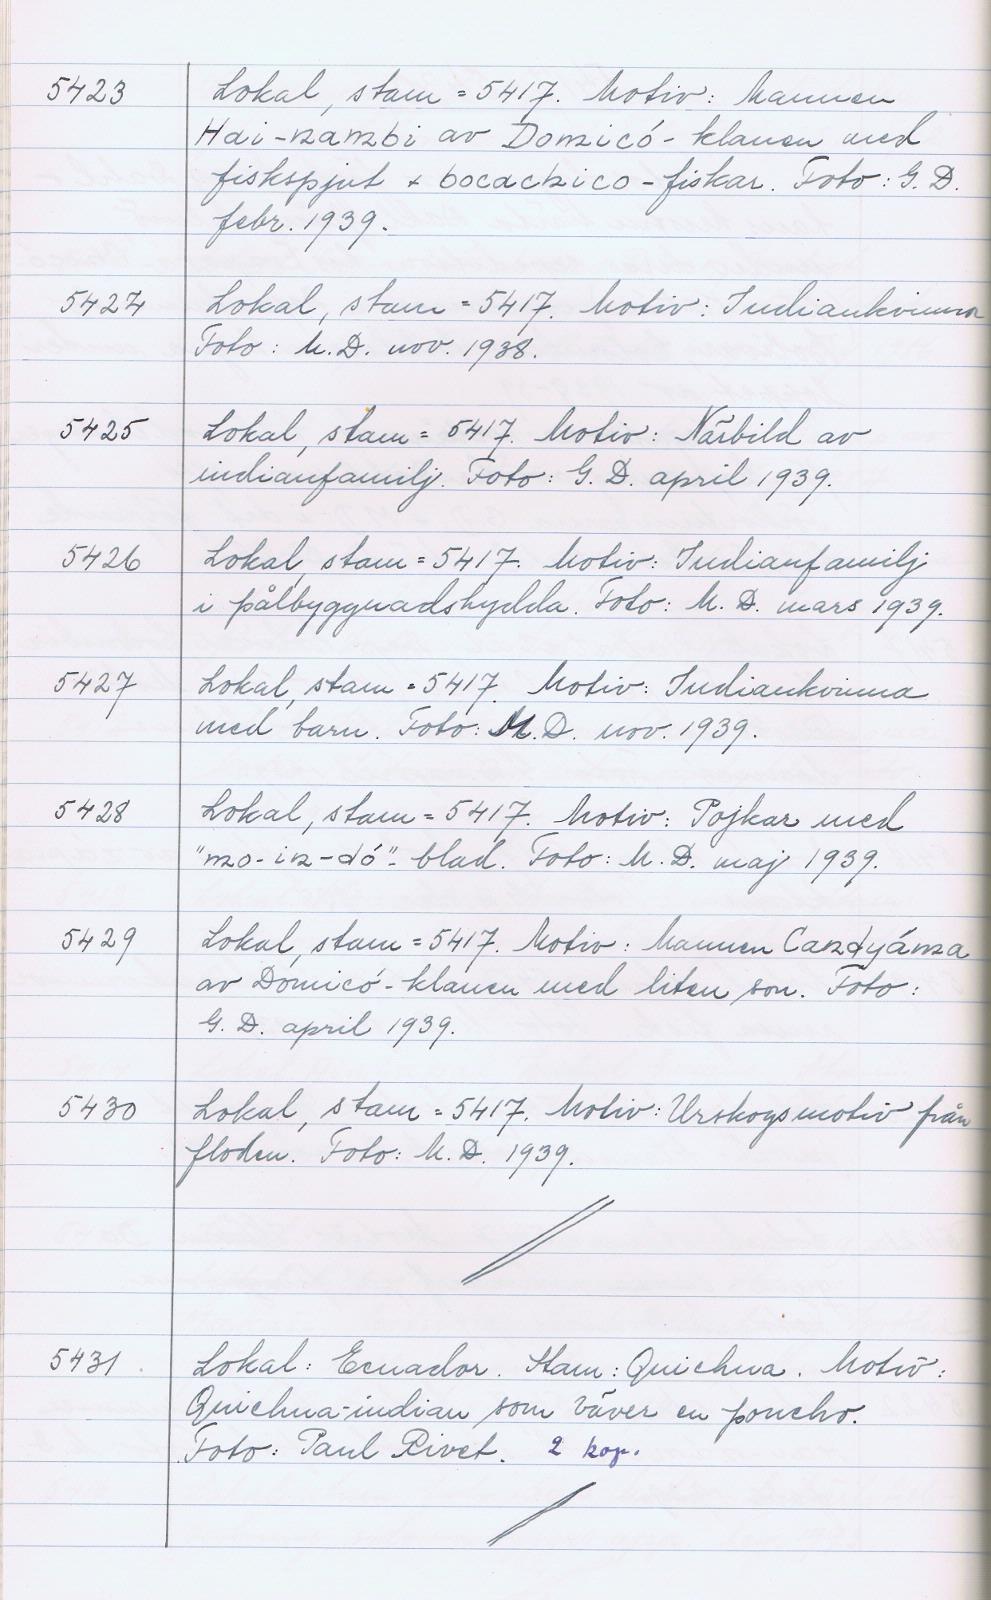 5423 Lokal, stam = 5417. Motiv: Mannen
Hai-nambi av Domicó-klanen med
fiskspjut + bocachico-fiskar. Foto: G. D.
febr. 1939.
5424 Lokal, stam = 5417. Motiv: Indiankvinna
Foto: M. D. nov. 1938.
5425 Lokal, stam = 5417. Motiv: Närbild av
indianfamilj. Foto: G. D. april 1939.
5426 Lokal, stam = 5417. Motiv: Indianfamilj
i pålbyggnadshydda. Foto: M. D. mars 1939.
5427 Lokal, stam = 5417. Motiv: Indiankvinna
med barn. Foto: M. D. nov. 1939.
5428 Lokal, stam = 5417. Motiv: Pojkar med
"mo-in-dó"-blad. Foto: M. D. maj 1939.
5429 Lokal, stam = 5417. Motiv: Mannen Candyáma
av Domicó-klanen med liten son. Foto:
G. D. april 1939.
5430 Lokal, stam = 5417. Motiv: Urskogsmotiv från
floden. Foto: M. D. 1939.
5431 Lokal: Ecuador. Stam: Quichua. Motiv:
Quichua-indian som väver en poncho.
Foto: Paul Rivet. 2 kop.